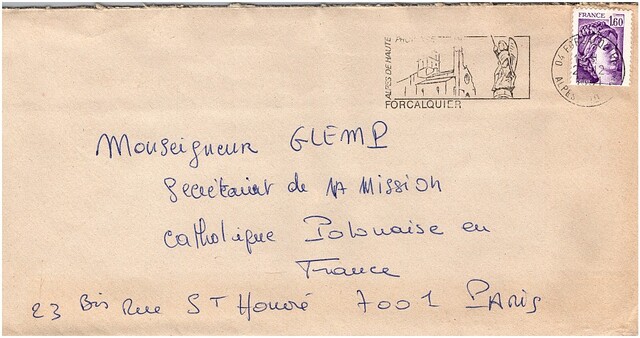 FRANCE
1,60
ALPES DE HAUTE
FORCALQUIER
04
ALPES
Monseigneur GLEMP
Secrétariat de la Mission
Catholique Polonaise en
France
23 Bis Rue St Honoré 7001 PARIS